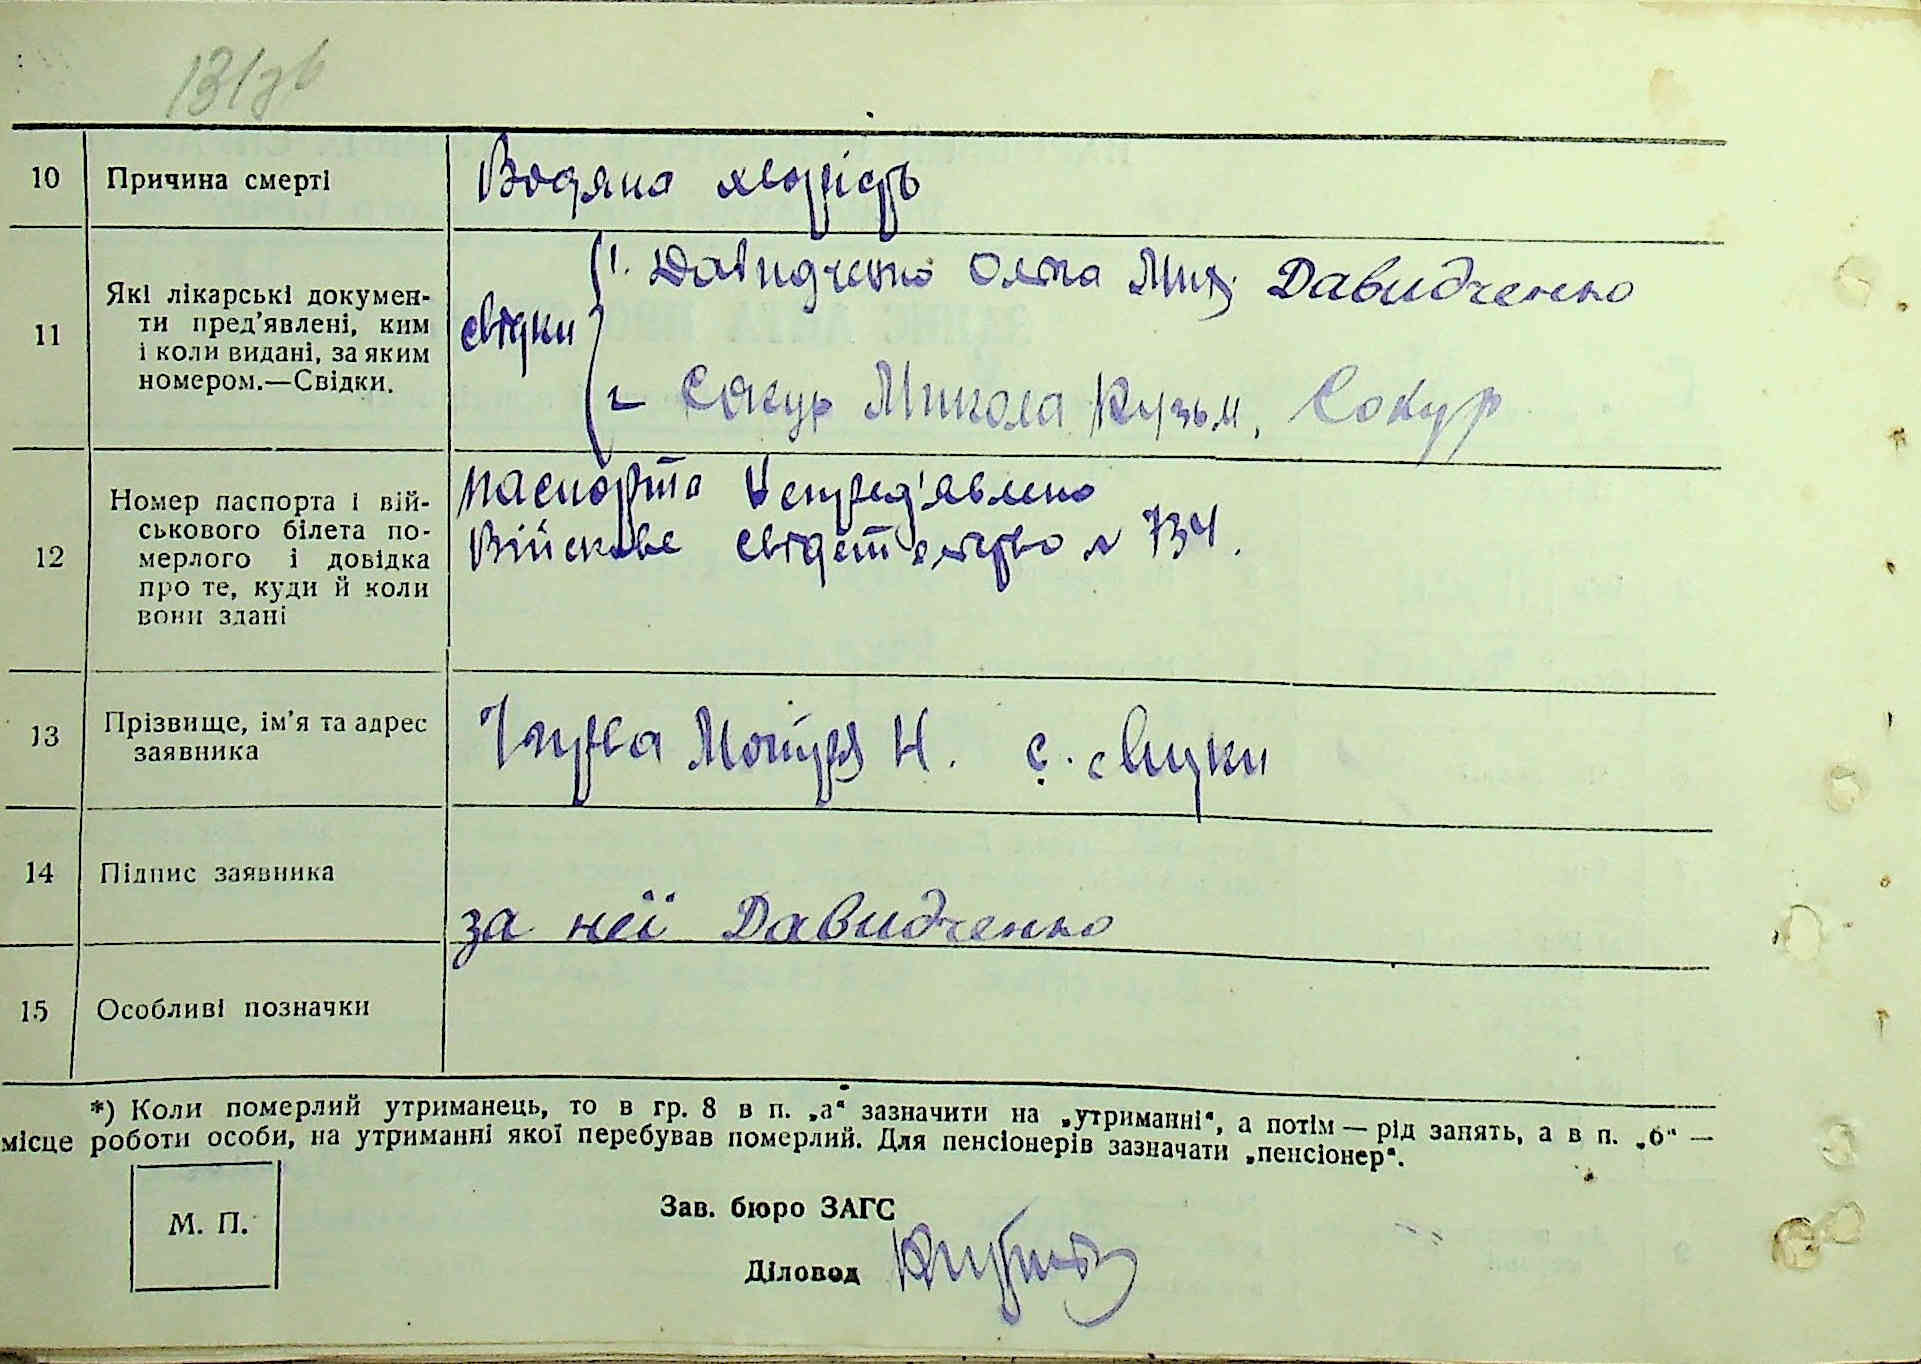 131зв
10 Причина смерті Водяна хворість
11 Які лікарські докумен-
ти пред'явлені, ким
і коли видані, за яким
номером.—Свідки.
свідки
1. Давидченко Ольга Мих. Давидченко
2 Сокур Микола Кузьм. Сокур
12 Номер паспорта і вій-
ськового білета по-
мерлого і довідка
про те, куди й коли
вони здані
паспорта непред'явлено
Війскове свідетельство № 734.
13 Прізвище, ім'я та адрес
заявника
Мотря Н. с. Луки
14 Підпис заявника
за неї Давидченко
15 Особливі позначки
*) Коли померлий утриманець, то в гр. 8 в п. „а“ зазначити на „утриманні“, а потім — рід занять, а в п. „б“ —
місце роботи особи, на утриманні якої перебував померлий. Для пенсіонерів зазначати „пенсіонер“.
М. П.
Зав. бюро ЗАГС
Діловод